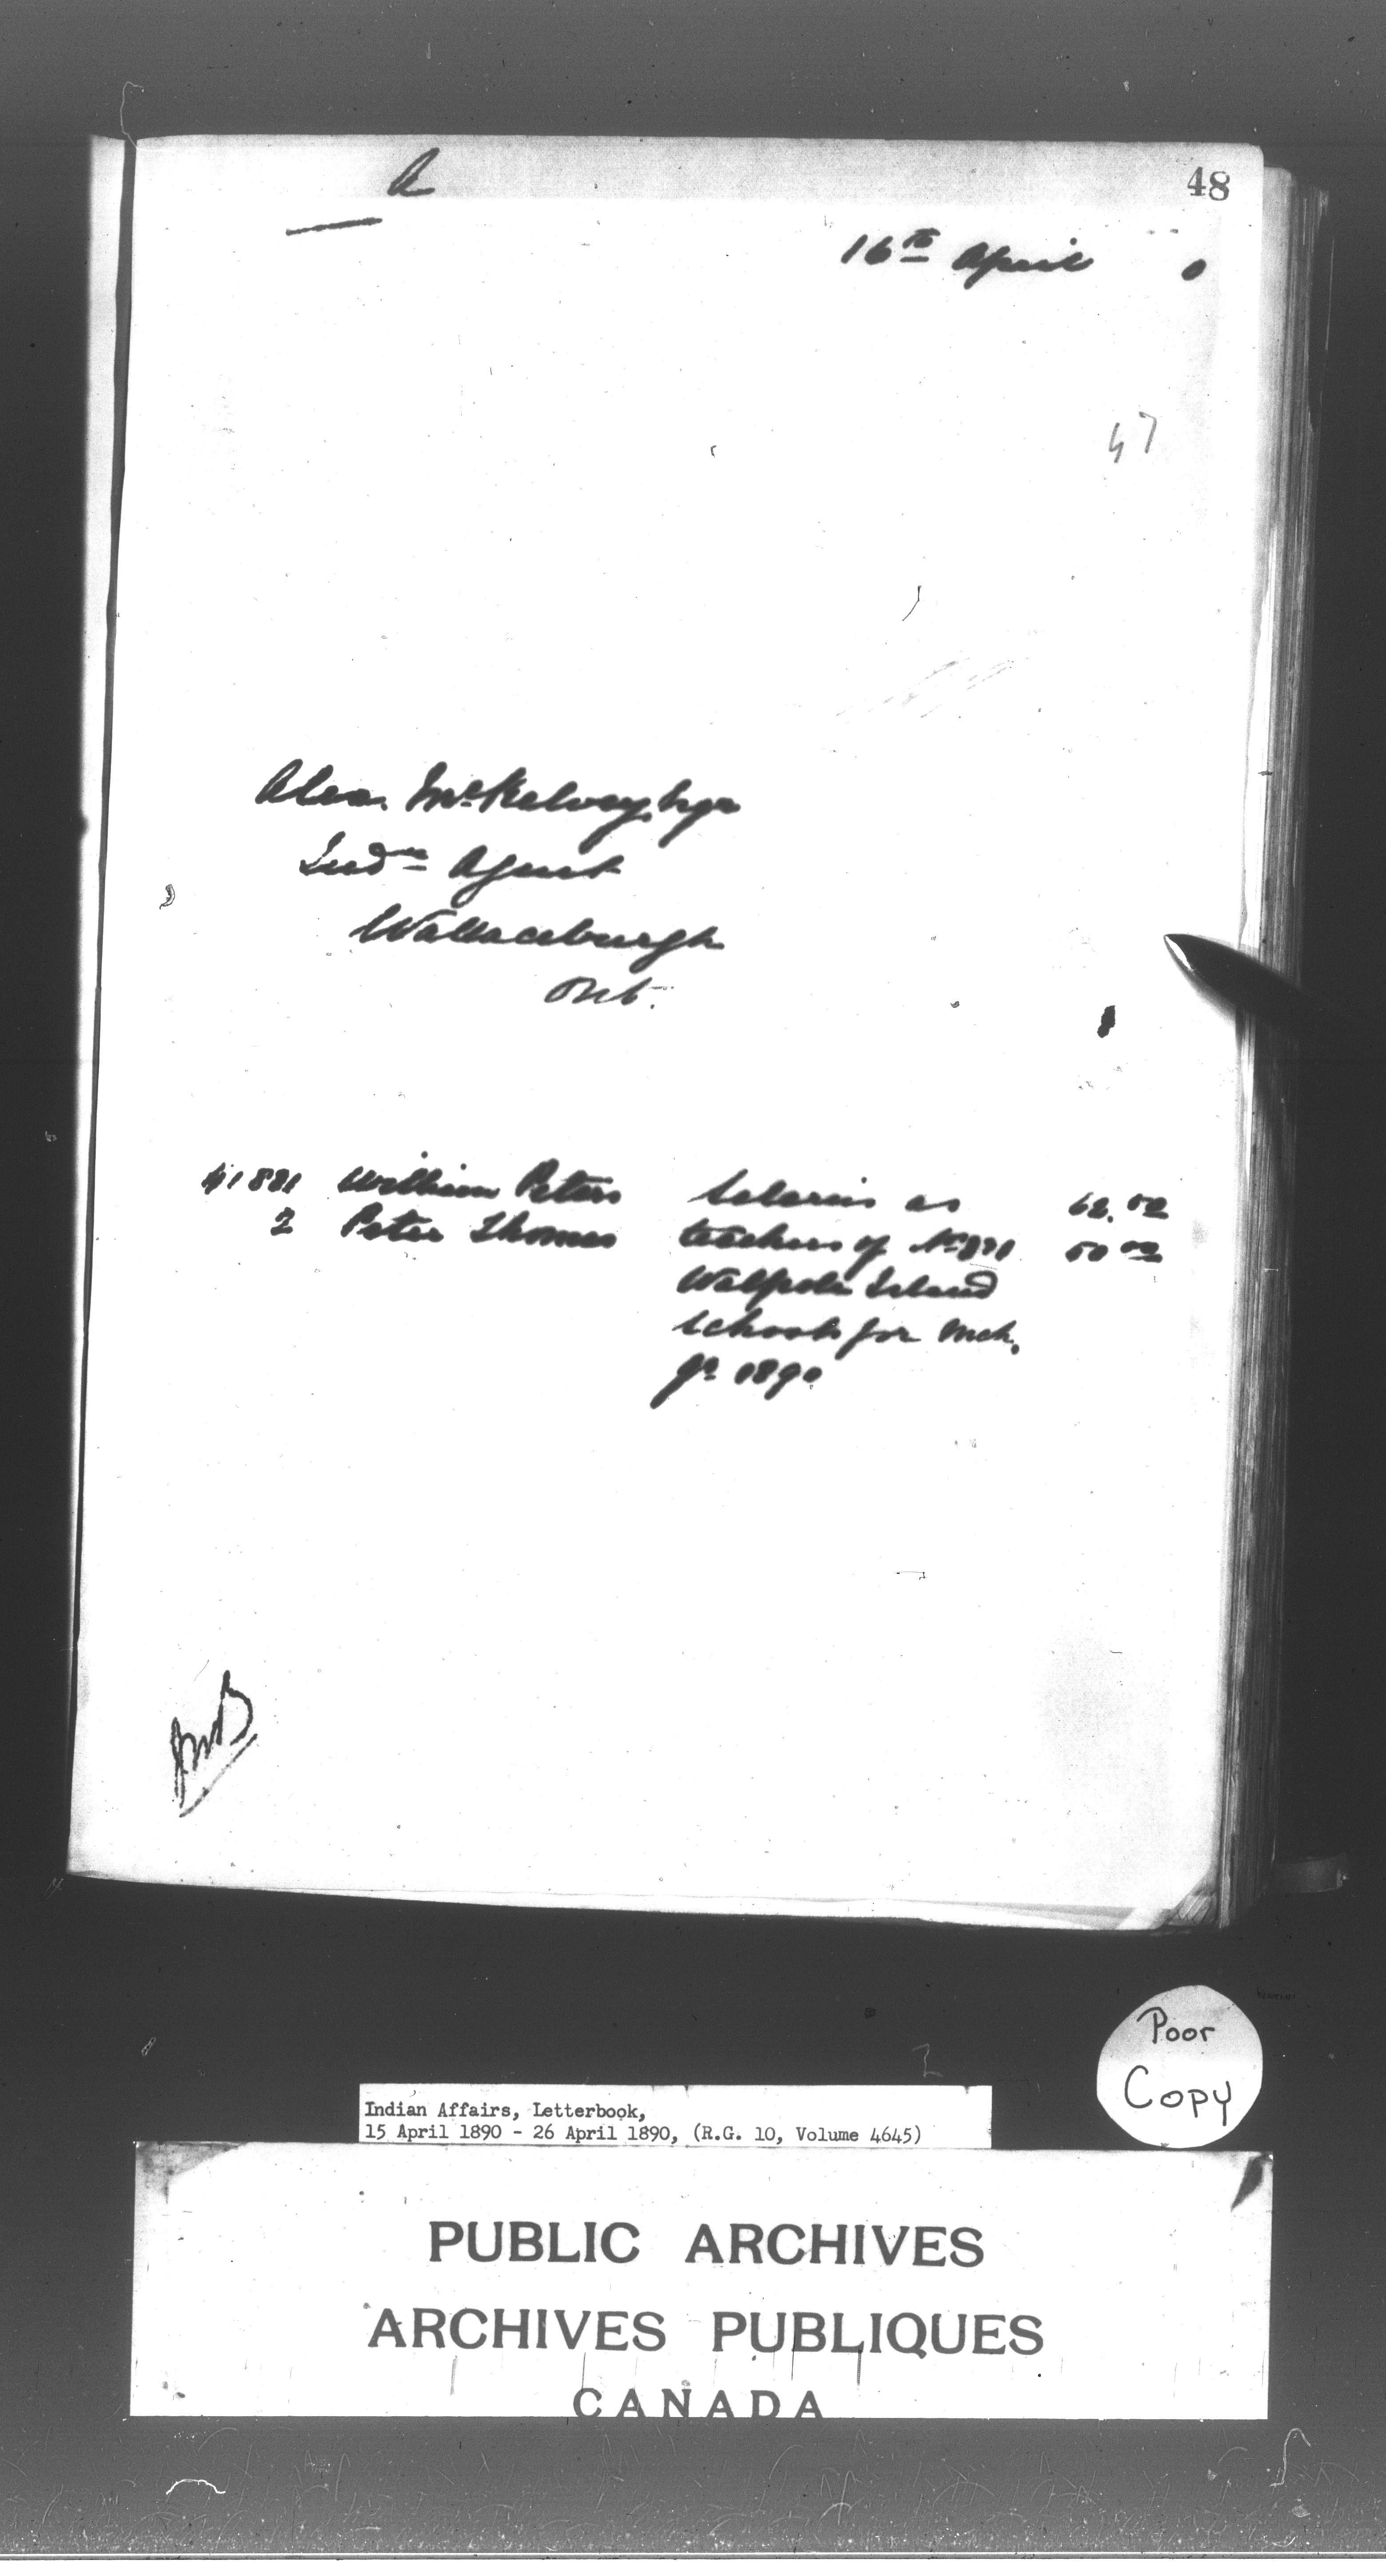 A
48
16th April 0
47
Alex. McKelvey, Esqr
Indn Agent
Wallaceburgh
Ont.
William Peters Salaries as
2 Peter Thomas teachers of 50 00
Walpole Island
Schools for Mch.
qr 1890
Poor
Copy
Indian Affairs, Letterbook,
15 April 1890 - 26 April 1890, (R.G. 10, Volume 4645)
PUBLIC ARCHIVES
ARCHIVES PUBLIQUES
CANADA